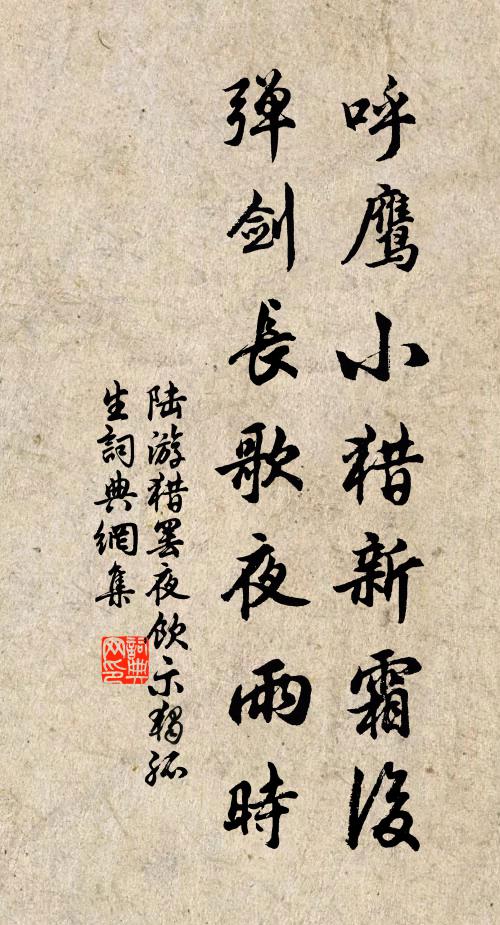 呼鹰小猎新霜后
弹剑长歌夜雨時
陆游猎罢夜饮示独孤
生詞典網集
詞典网印